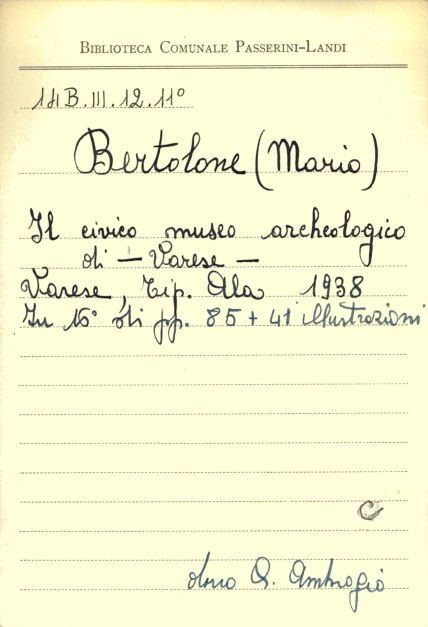 BIBLIOTECA COMUNALE PASSERINI-LANDI
14B.III.12.11°
Bertolone (Mario)
Il civico museo archeologico
di — Varese —
Varese, Tip. Ala 1938
In 16° di pp. 85 + 41 illustrazioni
C
dono Q. Ambrogio